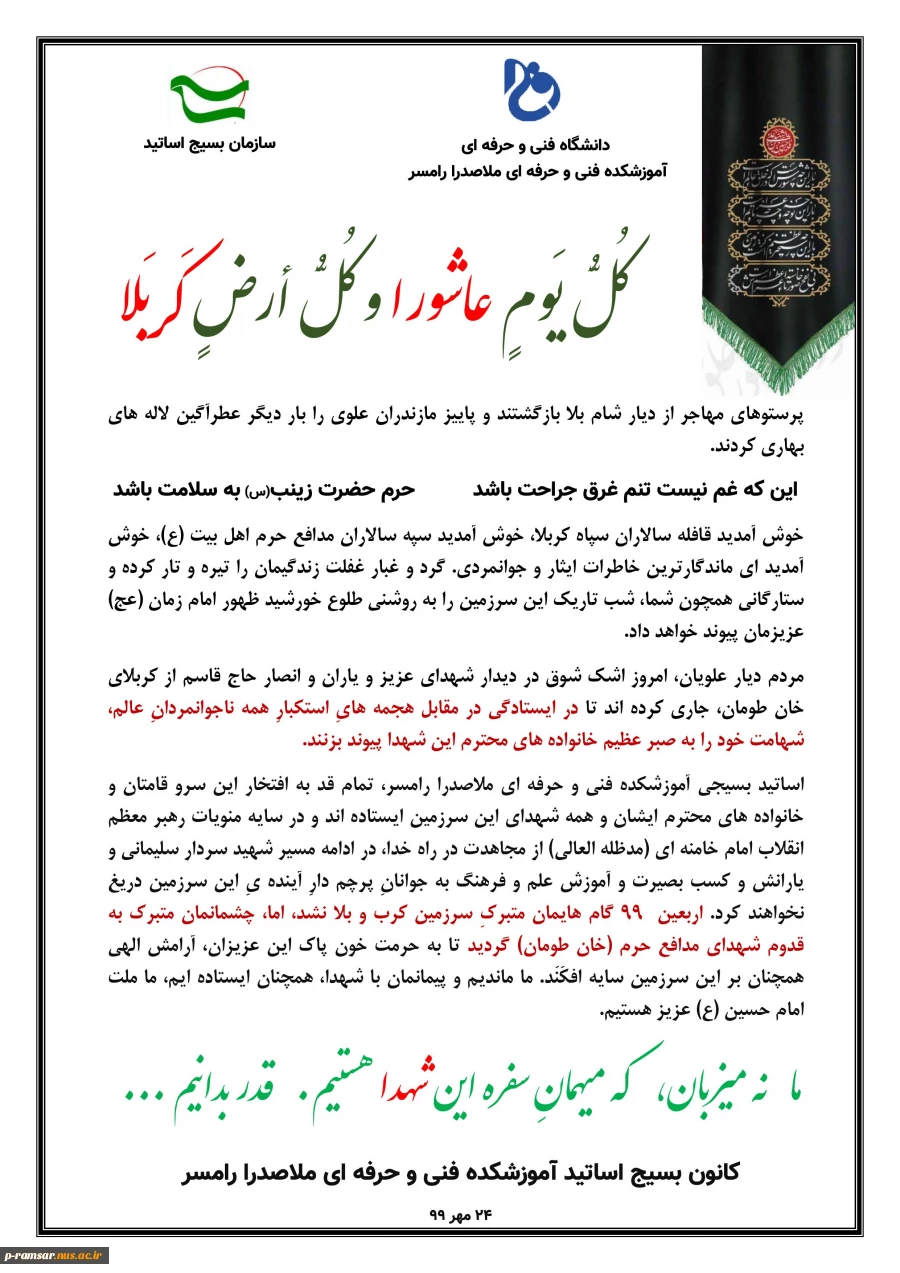 دانشگاه فنی و حرفه ای
آموزشکده فنی و حرفه ای ملاصدرا رامسر
سازمان بسیج اساتید
کُلُّ یَومٍ عاشورا و کُلُّ أرضٍ کَربَلَا
پرستوهای مهاجر از دیار شام بلا بازگشتند و پاییز مازندران علوی را بار دیگر عطرآگین لاله های
بهاری کردند.
این که غم نیست تنم غرق جراحت باشد حرم حضرت زینب(س) به سلامت باشد
خوش آمدید قافله سالاران سپاه کربلا، خوش آمدید سپه سالاران مدافع حرم اهل بیت (ع)، خوش
آمدید ای ماندگارترین خاطرات ایثار و جوانمردی. گرد و غبار غفلت زندگیمان را تیره و تار کرده و
ستارگانی همچون شما، شب تاریک این سرزمین را به روشنی طلوع خورشید ظهور امام زمان (عج)
عزیزمان پیوند خواهد داد.
مردم دیار علویان، امروز اشک شوق در دیدار شهدای عزیز و یاران و انصار حاج قاسم از کربلای
خان طومان، جاری کرده اند تا در ایستادگی در مقابل هجمه هایِ استکبارِ همه ناجوانمردانِ عالم،
شهامت خود را به صبر عظیم خانواده های محترم این شهدا پیوند بزنند.
اساتید بسیجی آموزشکده فنی و حرفه ای ملاصدرا رامسر، تمام قد به افتخار این سرو قامتان و
خانواده های محترم ایشان و همه شهدای این سرزمین ایستاده اند و در سایه منویات رهبر معظم
انقلاب امام خامنه ای (مدظله العالی) از مجاهدت در راه خدا، در ادامه مسیر شهید سردار سلیمانی و
یارانش و کسب بصیرت و آموزش علم و فرهنگ به جوانانِ پرچم دارِ آینده یِ این سرزمین دریغ
نخواهند کرد. اربعین ۹۹ گام هایمان متبرکِ سرزمین کرب و بلا نشد، اما، چشمانمان متبرک به
قدوم شهدای مدافع حرم (خان طومان) گردید تا به حرمت خون پاک این عزیزان، آرامش الهی
همچنان بر این سرزمین سایه افکَنَد. ما ماندیم و پیمانمان با شهدا، همچنان ایستاده ایم، ما ملت
امام حسین (ع) عزیز هستیم.
ما نه میزبان، که میهمانِ سفره این شهدا هستیم. قدر بدانیم ...
کانون بسیج اساتید آموزشکده فنی و حرفه ای ملاصدرا رامسر
۲۴ مهر ۹۹
p-ramsar.nus.ac.ir